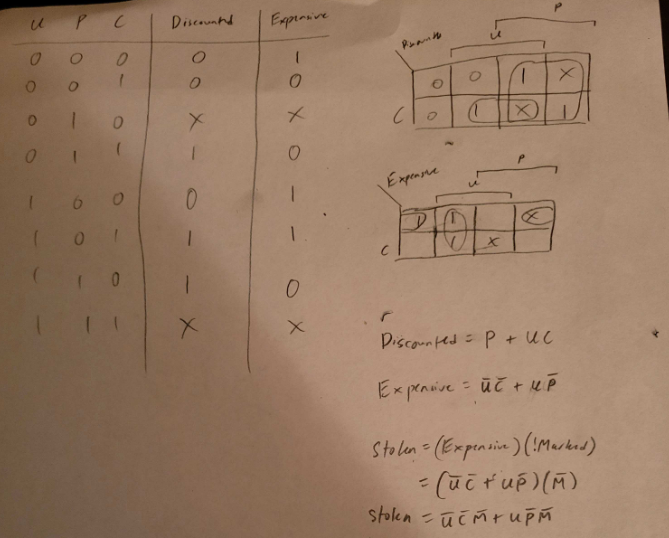 U P C Discounted Expensive
0 0 0 0 1
0 0 1 0 0
0 1 0 X X
0 1 1 1 0
1 0 0 0 1
1 0 1 1 1
1 1 0 1 0
1 1 1 X X
P
U
0 0 1 X
C 0 1 X 1
P
Expensive U
1 1 X
C 1 X
Discounted = P + UC
Expensive = U̅C̅ + UP̅
Stolen = (Expensive)(!Marked)
= (U̅C̅ + UP̅)(M̅)
Stolen = U̅C̅M̅ + UP̅M̅